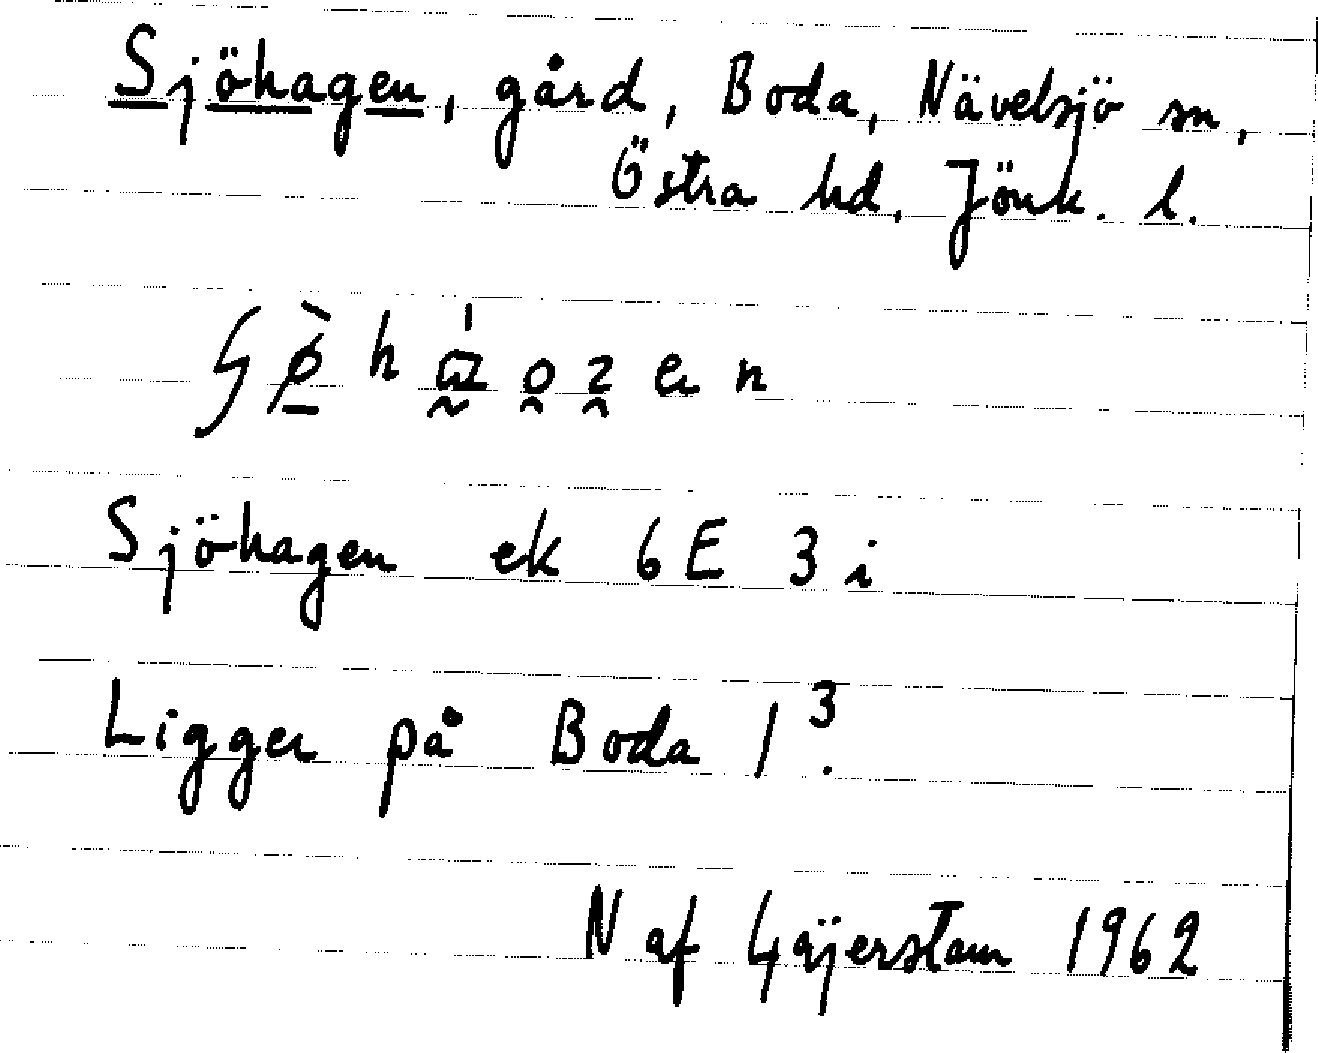 Sjöhagen, gård, Boda, Nävelsjö sn,
Östra hd, Jönk. l.
Sjöhagen ek 6E 3 i
Ligger på Boda 1³.
N af Gäjerstam 1962